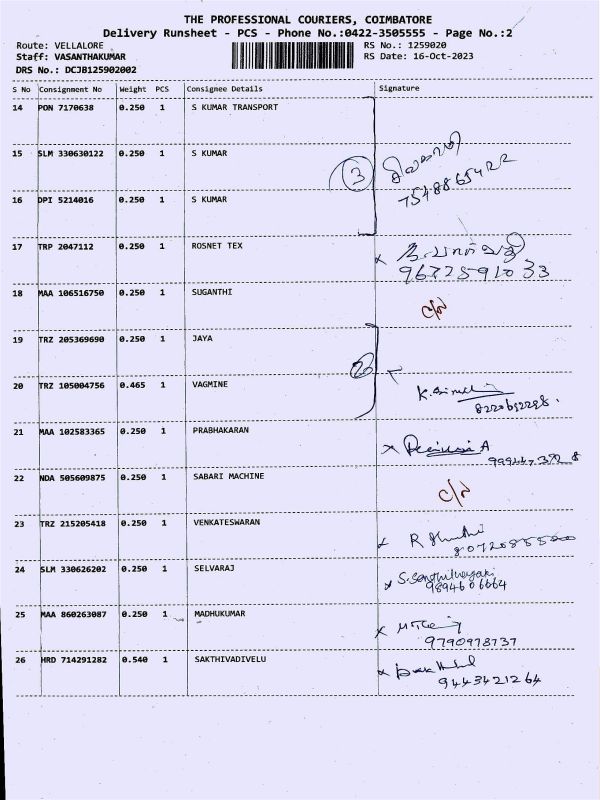 THE PROFESSIONAL COURIERS, COIMBATORE
Delivery Runsheet - PCS - Phone No.:0422-3505555 - Page No.:2
Route: VELLALORE RS No.: 1259020
Staff: VASANTHAKUMAR RS Date: 16-Oct-2023
DRS No.: DCJB125902002
S No Consignment No Weight PCS Consignee Details Signature
14 PON 7170638 0.250 1 S KUMAR TRANSPORT
15 SLM 330630122 0.250 1 S KUMAR
3
7548865422
16 DPI 5214016 0.250 1 S KUMAR
17 TRP 2047112 0.250 1 ROSNET TEX
9677591033
18 MAA 106516750 0.250 1 SUGANTHI
C/N
19 TRZ 205369690 0.250 1 JAYA
2
20 TRZ 105004756 0.465 1 VAGMINE
21 MAA 102583365 0.250 1 PRABHAKARAN
22 NDA 505609875 0.250 1 SABARI MACHINE
C/N
23 TRZ 215205418 0.250 1 VENKATESWARAN
24 SLM 330626202 0.250 1 SELVARAJ
S. Senthilnayaki
9894606664
25 MAA 860263087 0.250 1 MADHUKUMAR
9790978737
26 HRD 714291282 0.540 1 SAKTHIVADIVELU
9443421264